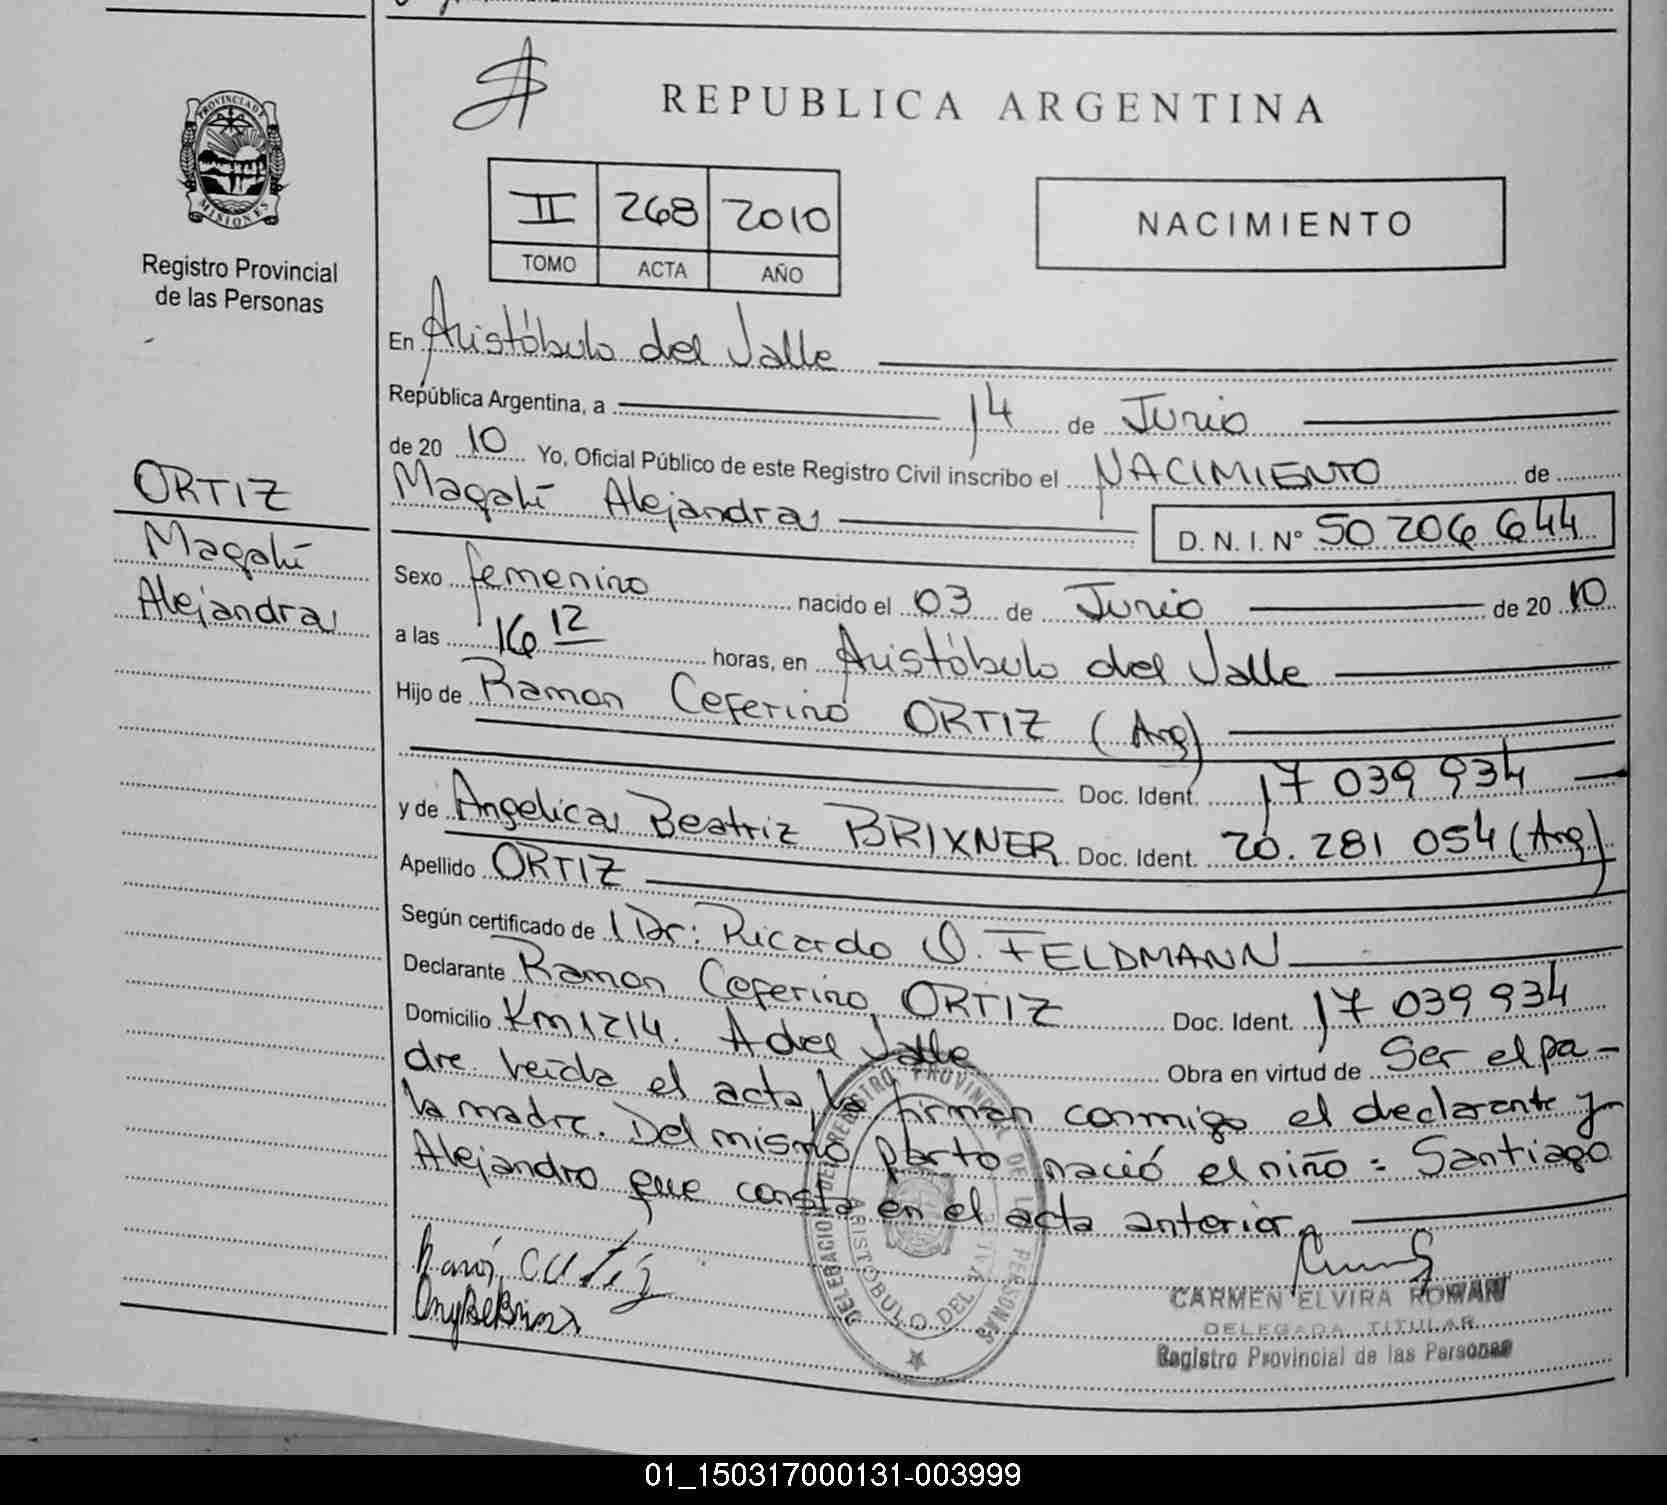 REPUBLICA ARGENTINA
PROVINCIA DE
MISIONES
Registro Provincial
de las Personas
II 268 2010
TOMO ACTA AÑO
NACIMIENTO
ORTIZ
Magalí
Alejandra
En Aristóbulo del Valle
República Argentina, a 14 de Junio
de 2010 Yo, Oficial Público de este Registro Civil inscribo el NACIMIENTO de
Magalí Alejandra D. N. I. N° 50 206 644
Sexo femenino nacido el 03 de Junio de 2010
a las 16 12 horas, en Aristóbulo del Valle
Hijo de Ramon Ceferino ORTIZ (Arg)
Doc. Ident. 17 039 934
y de Angelica Beatriz BRIXNER Doc. Ident. 20.281 054 (Arg)
Apellido ORTIZ
Según certificado de Dr: Ricardo O. FELDMANN
Declarante Ramon Ceferino ORTIZ Doc. Ident. 17 039 934
Domicilio Km 1214. A del Valle Obra en virtud de Ser el pa-
dre leída el acta, la firman conmigo el declarante y
la madre. Del mismo parto nació el niño: Santiago
Alejandro que consta en el acta anterior
DELEGACION DEL REGISTRO PROVINCIAL DE LAS PERSONAS
ARISTOBULO DEL VALLE
CARMEN ELVIRA ROMAN
DELEGADA TITULAR
Registro Provincial de las Personas
01_150317000131-003999